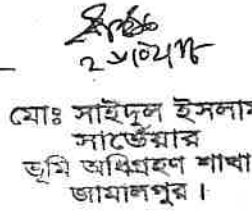 মোঃ সাইদুল ইসলাম
সার্ভেয়ার
ভূমি অধিগ্রহণ শাখা
জামালপুর ।